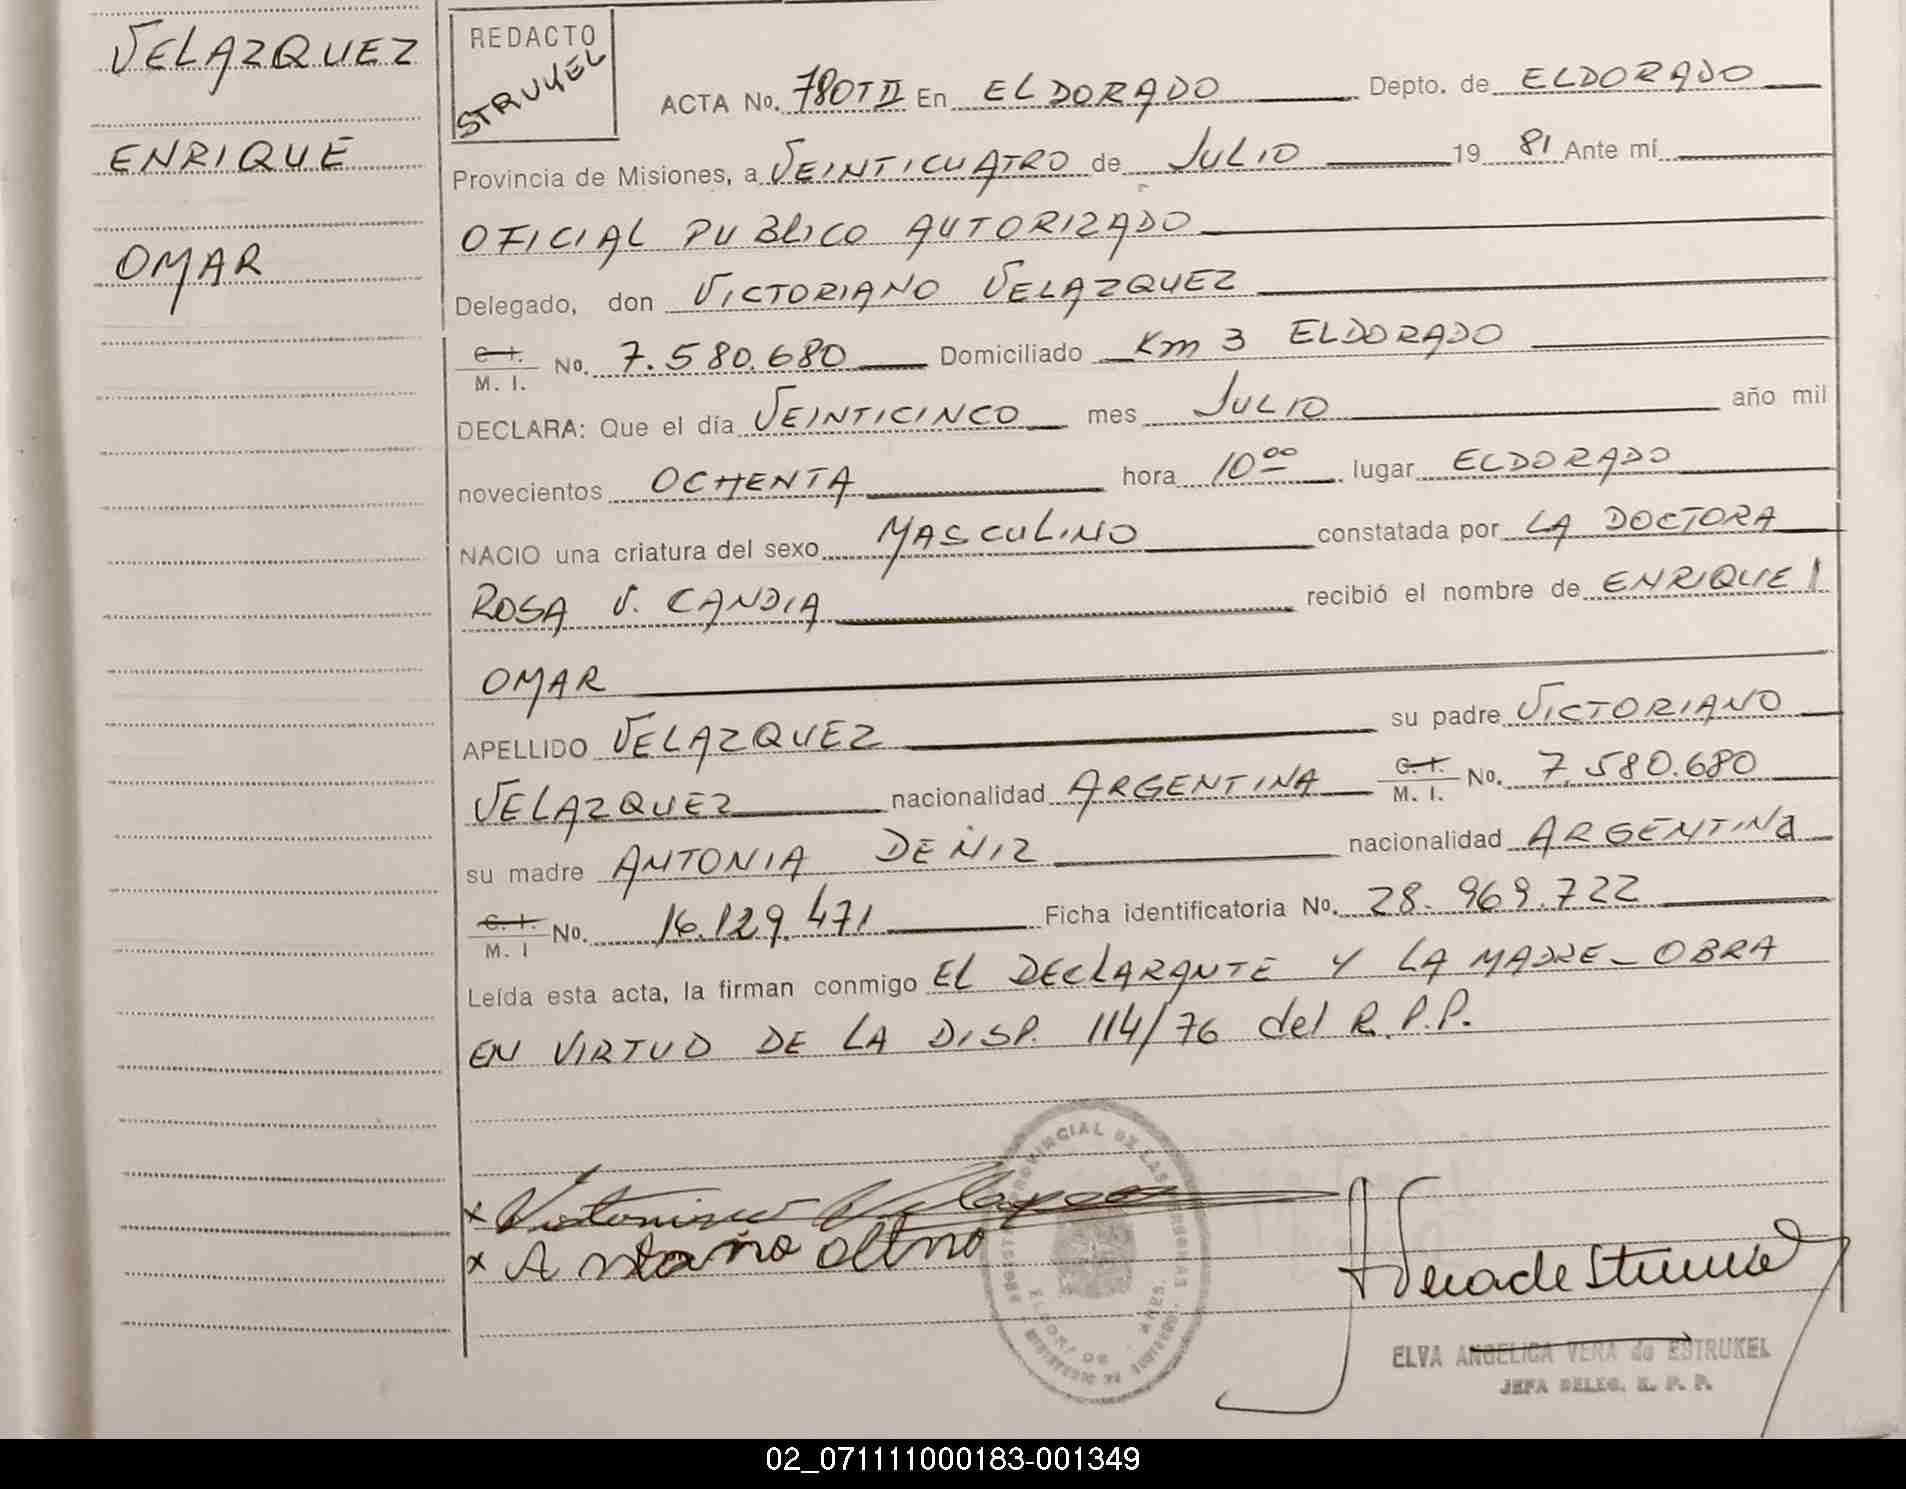 VELAZQUEZ
ENRIQUE
OMAR
REDACTO
STRUKEL
ACTA No. 780TII En EL DORADO Depto. de ELDORADO
Provincia de Misiones, a VEINTICUATRO de JULIO 19 81 Ante mí
OFICIAL PUBLICO AUTORIZADO
Delegado, don VICTORIANO VELAZQUEZ
C.I. M. I. No. 7.580.680 Domiciliado Km 3 ELDORADO
DECLARA: Que el día VEINTICINCO mes JULIO año mil
novecientos OCHENTA hora 10⁰⁰ lugar ELDORADO
NACIO una criatura del sexo MASCULINO constatada por LA DOCTORA
ROSA V. CANDIA recibió el nombre de ENRIQUE
OMAR
APELLIDO VELAZQUEZ su padre VICTORIANO
VELAZQUEZ nacionalidad ARGENTINA C.I. M. I. No. 7.580.680
su madre ANTONIA DENIZ nacionalidad ARGENTINA
C.I. M. I No. 16.129.471 Ficha identificatoria No. 28.969.722
Leída esta acta, la firman conmigo EL DECLARANTE Y LA MADRE_OBRA
EN VIRTUD DE LA DISP. 114/76 del R.P.P.
x Victoriano Velazquez
x
ELVA ANGELICA VERA de ESTRUKEL
JEFA DELEG. R. P. P.
02_071111000183-001349